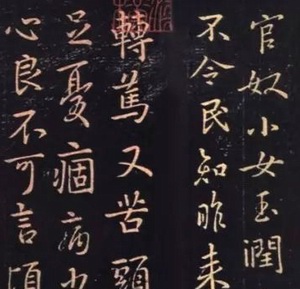 官奴小女玉潤
不令民知昨来
轉篤又苦頭
足憂痼病少
心良不可言頃